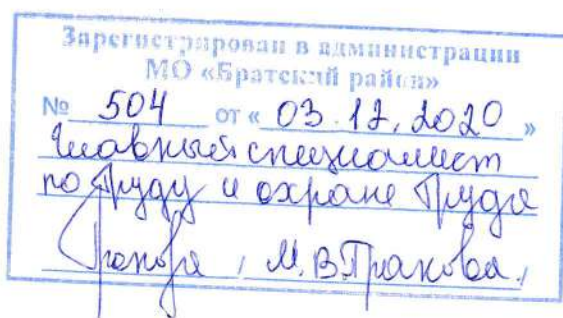 Зарегистрирован в администрации
МО «Братский район»
№ 504 от « 03.12.2020 »
Главный специалист
по труду и охране труда
М.В.Тракова